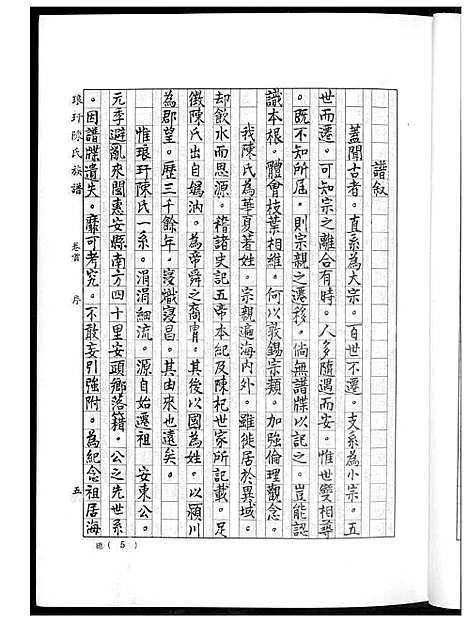 譜叙
蓋聞古者。直系為大宗。百世不遷。支系為小宗。五
世而遷。可知宗之離合有時。人多隨遇而安。惟世變相尋
。既不知所居。則宗親之遷移。倘無譜牒以記之。豈能認
識本根。體會枝葉相維。何以敦錫宗類。加強倫理觀念。
我陳氏為華夏著姓。宗親遍海內外。雖徙居於異域。
却飲水而思源。稽諸史記五帝本紀及陳杞世家所記載。足
徵陳氏出自媯汭。為帝舜之裔冑。其後以國為姓。以潁川
為郡望。歷三千餘年。寖熾寖昌。其由來也遠矣。
惟琅玕陳氏一系。涓涓細流。源自始遷祖　安東公。
元季避亂來閩惠安縣南方四十里安頭鄉落籍。公之先世系
。因譜牒遺失。靡可考究。不敢妄引強附。為紀念祖居海
琅玕陳氏族譜　卷首　序　五
總(5)